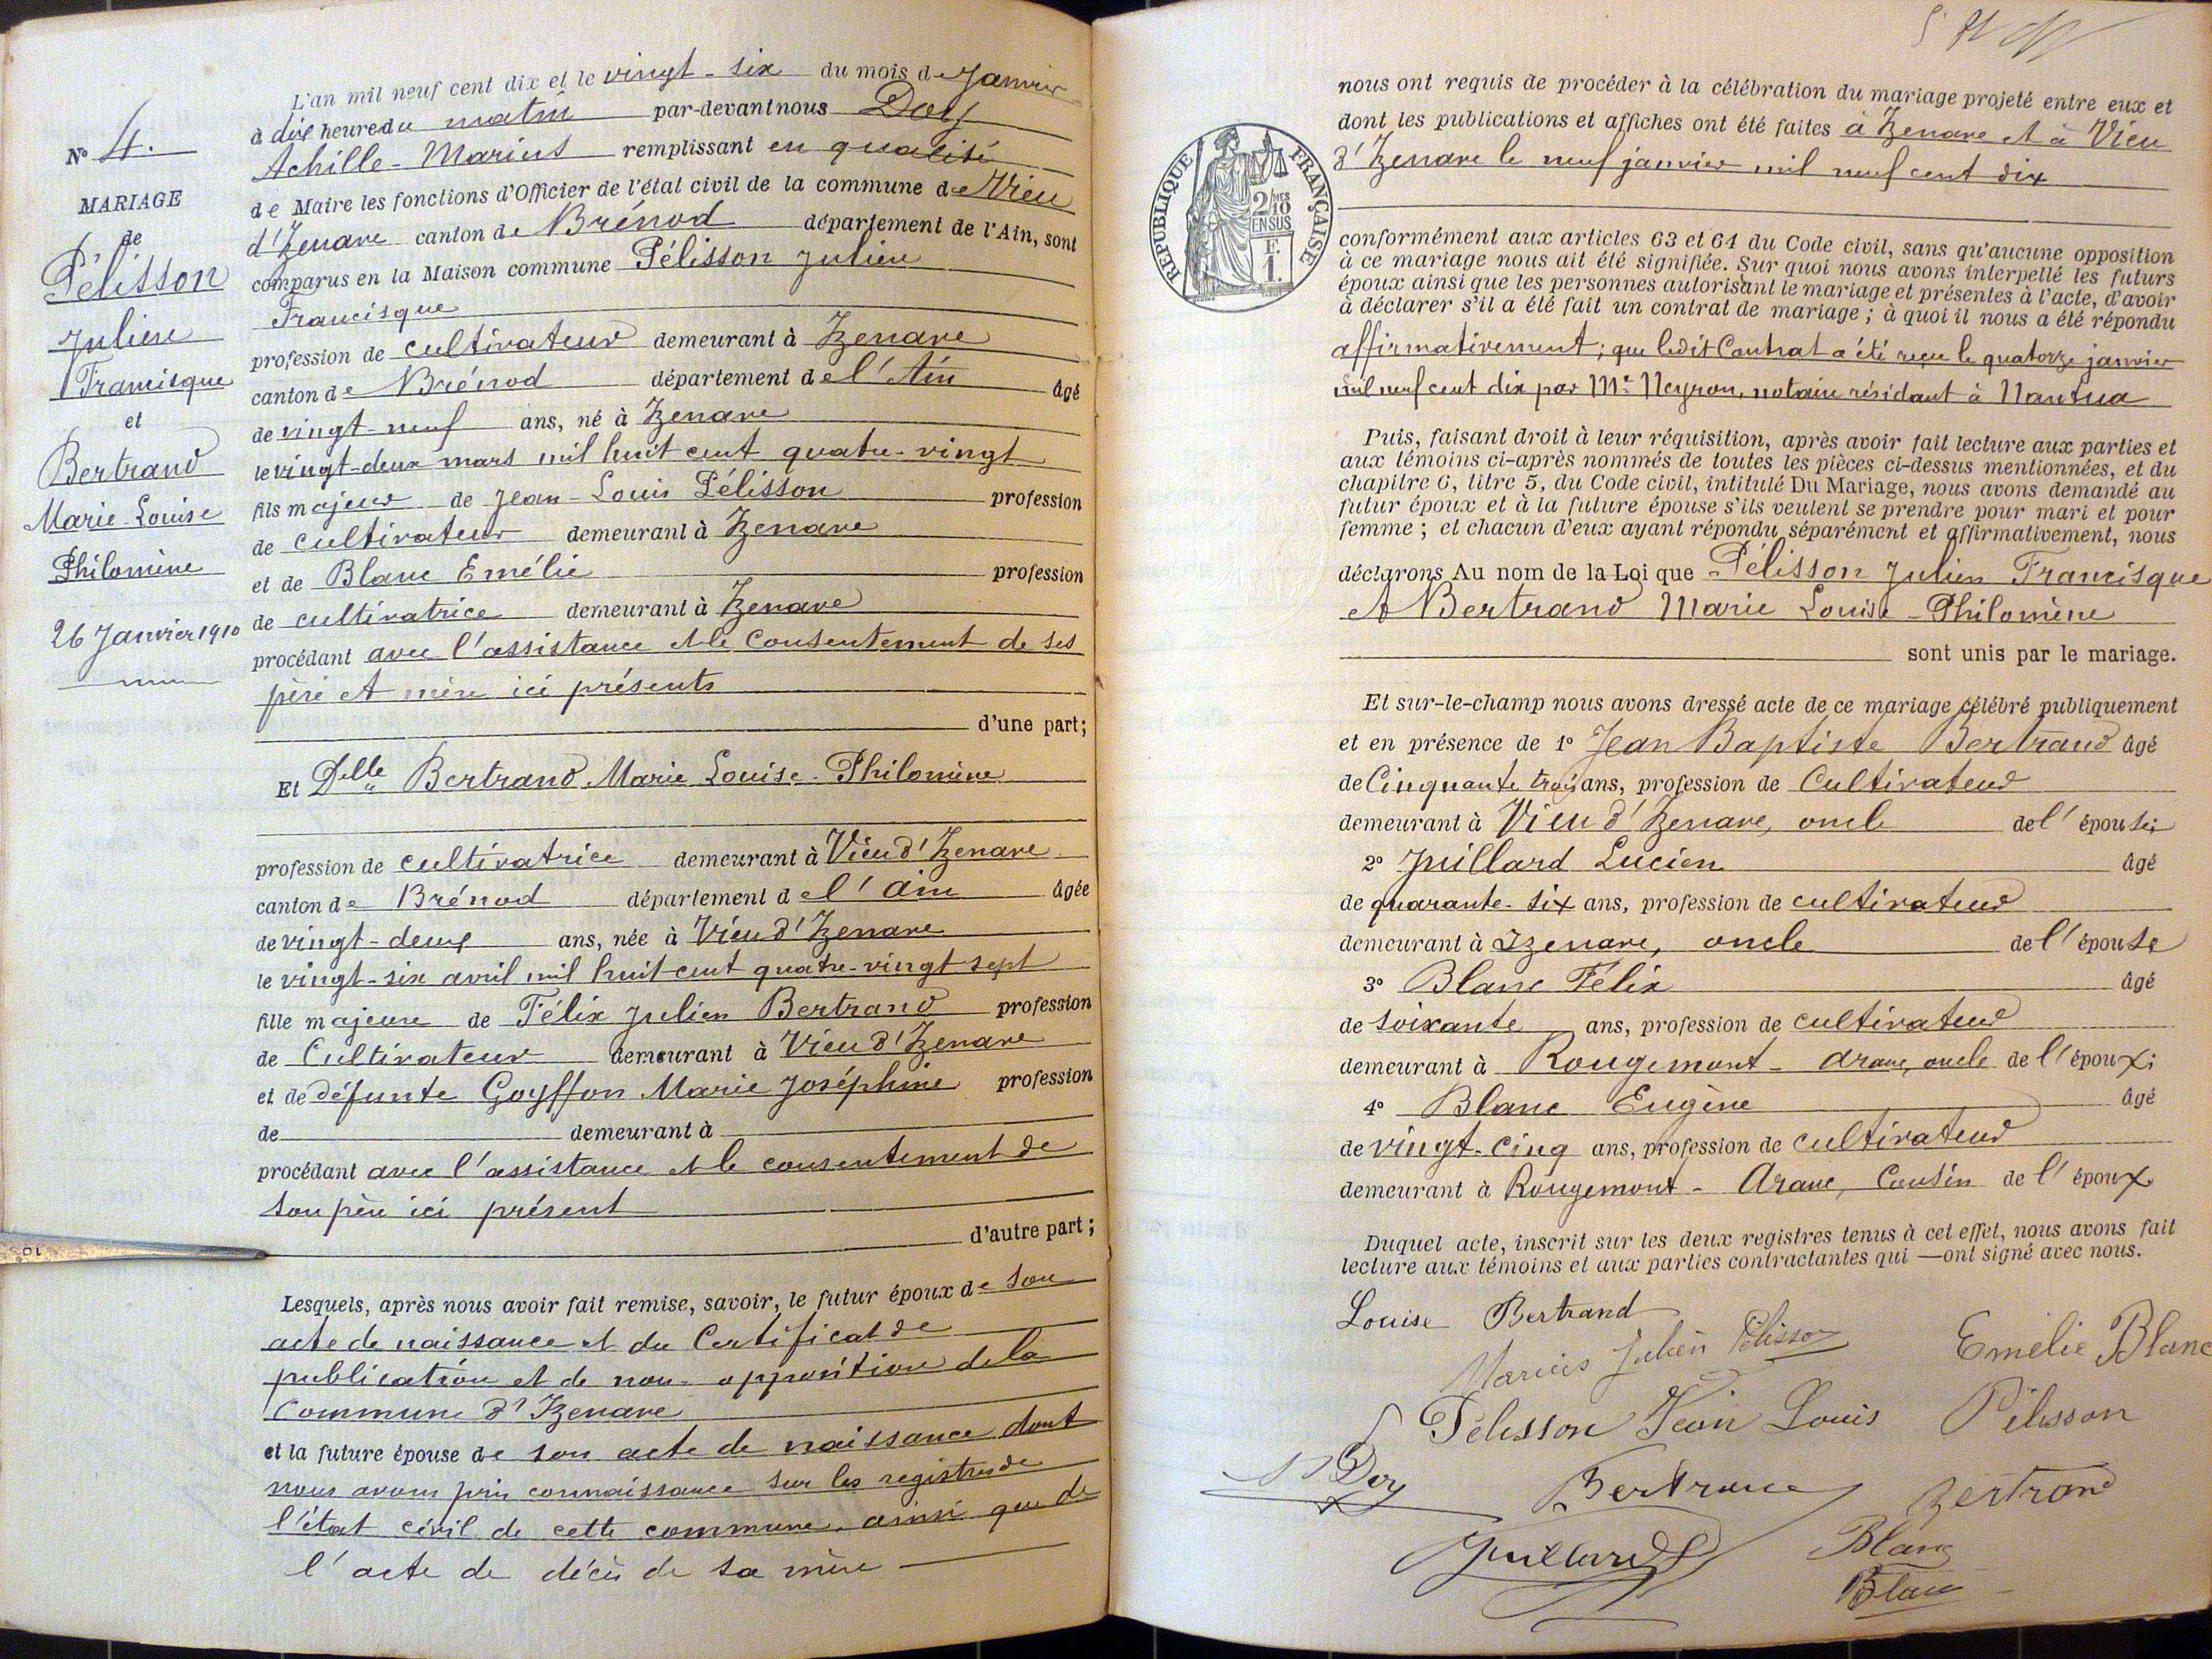 N° 4.
MARIAGE
de
Pélisson
Julien
Francisque
et
Bertrand
Marie Louise
Philomène
26 Janvier 1910
L'an mil neuf cent dix et le vingt-six du mois de Janvier
à dix heure du matin par-devant nous Doy
Achille-Marius remplissant en qualité
de Maire les fonctions d'Officier de l'état civil de la commune de Vieu
d'Izenave canton de Brénod département de l'Ain, sont
comparus en la Maison commune Pélisson Julien
Francisque
profession de cultivateur demeurant à Izenave
canton de Brénod département de l'Ain âgé
de vingt-neuf ans, né à Izenave
le vingt-deux mars mil huit cent quatre-vingt
fils majeur de Jean-Louis Pélisson profession
de cultivateur demeurant à Izenave
et de Blanc Emélie profession
de cultivatrice demeurant à Izenave
procédant avec l'assistance et le consentement de ses
père et mère ici présents
d'une part;
Et Delle Bertrand Marie Louise-Philomène
profession de cultivatrice demeurant à Vieu d'Izenave
canton de Brénod département de l'Ain âgée
de vingt-deux ans, née à Vieu d'Izenave
le vingt-six avril mil huit cent quatre-vingt sept
fille majeure de Félix Julien Bertrand profession
de Cultivateur demeurant à Vieu d'Izenave
et de défunte Goyffon Marie Joséphine profession
de demeurant à
procédant avec l'assistance et le consentement de
son père ici présent
d'autre part;
Lesquels, après nous avoir fait remise, savoir, le futur époux de son
acte de naissance et du Certificat de
publication et de non-opposition de la
Commune d'Izenave
et la future épouse de son acte de naissance dont
nous avons pris connaissance sur les registres de
l'état civil de cette commune, ainsi que de
l'acte de décès de sa mère
nous ont requis de procéder à la célébration du mariage projeté entre eux et
dont les publications et affiches ont été faites à Izenave et à Vieu
d'Izenave le neuf janvier mil neuf cent dix
RÉPUBLIQUE FRANÇAISE
2/10MES
EN SUS
F.
1.
conformément aux articles 63 et 64 du Code civil, sans qu'aucune opposition
à ce mariage nous ait été signifiée. Sur quoi nous avons interpellé les futurs
époux ainsi que les personnes autorisant le mariage et présentes à l'acte, d'avoir
à déclarer s'il a été fait un contrat de mariage; à quoi il nous a été répondu
affirmativement; que ledit Contrat a été reçu le quatorze janvier
mil neuf cent dix par Me Neyron, notaire résidant à Nantua
Puis, faisant droit à leur réquisition, après avoir fait lecture aux parties et
aux témoins ci-après nommés de toutes les pièces ci-dessus mentionnées, et du
chapitre 6, titre 5, du Code civil, intitulé Du Mariage, nous avons demandé au
futur époux et à la future épouse s'ils veulent se prendre pour mari et pour
femme; et chacun d'eux ayant répondu séparément et affirmativement, nous
déclarons Au nom de la Loi que Pélisson Julien Francisque
et Bertrand Marie Louise-Philomène
sont unis par le mariage.
Et sur-le-champ nous avons dressé acte de ce mariage célébré publiquement
et en présence de 1° Jean Baptiste Bertrand âgé
de Cinquante trois ans, profession de Cultivateur
demeurant à Vieu d'Izenave, oncle de l'épouse;
2° Juillard Lucien âgé
de quarante-six ans, profession de cultivateur
demeurant à Izenave, oncle de l'épouse
3° Blanc Félix âgé
de soixante ans, profession de cultivateur
demeurant à Rougemont-Aranc, oncle de l'époux;
4° Blanc Eugène âgé
de vingt-cinq ans, profession de cultivateur
demeurant à Rougemont-Aranc, Cousin de l'époux.
Duquel acte, inscrit sur les deux registres tenus à cet effet, nous avons fait
lecture aux témoins et aux parties contractantes qui — ont signé avec nous.
Louise Bertrand
Marius Julien Pélisson Emélie Blanc
Pelisson Jean Louis Pélisson
Doy Bertrand Bertrand
Juillard Blanc
Blanc